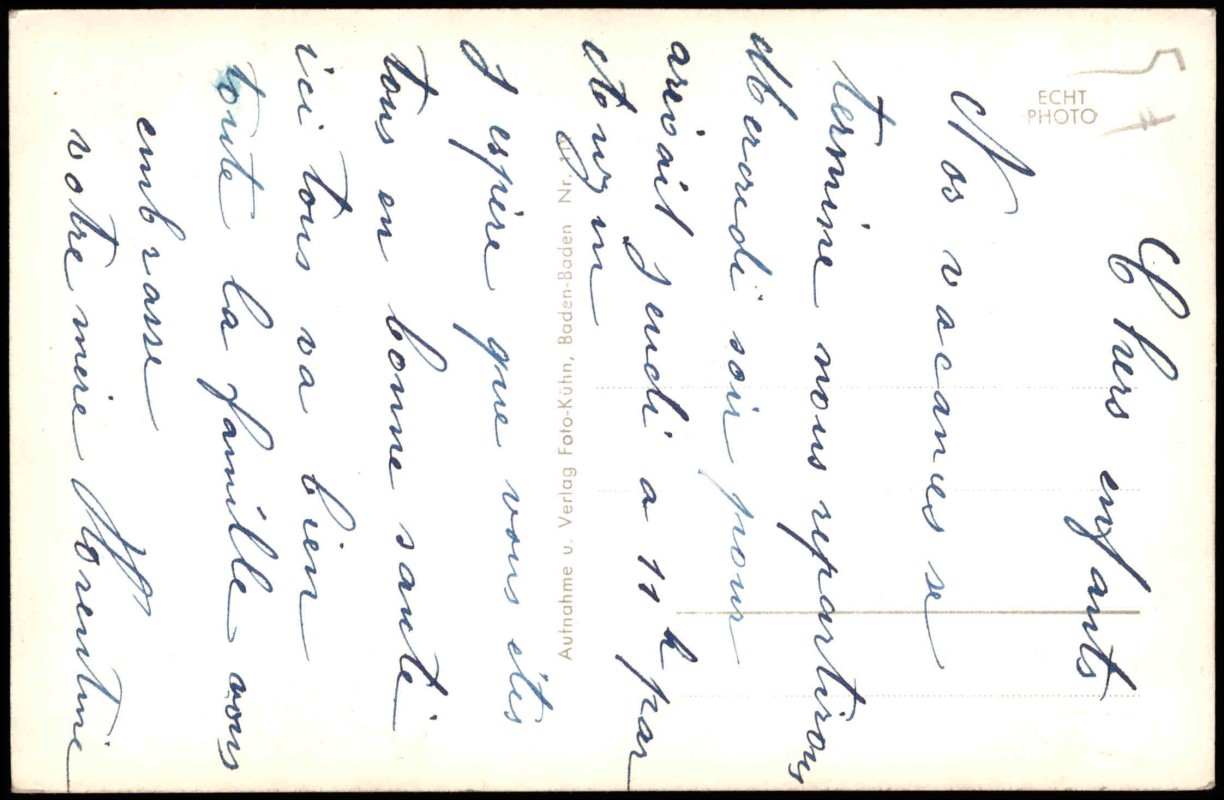 Chers enfants
Nos vacances se
termine nous repartirons
Mercredi soir pour
arivait jeudi a 11 h par
J espère que vous étes
tous en bonne santé
ici tous va bien
toute la famille vous
embrasse
votre mère Florentine
ECHT
PHOTO
Aufnahme u. Verlag Foto-Kühn, Baden-Baden Nr.